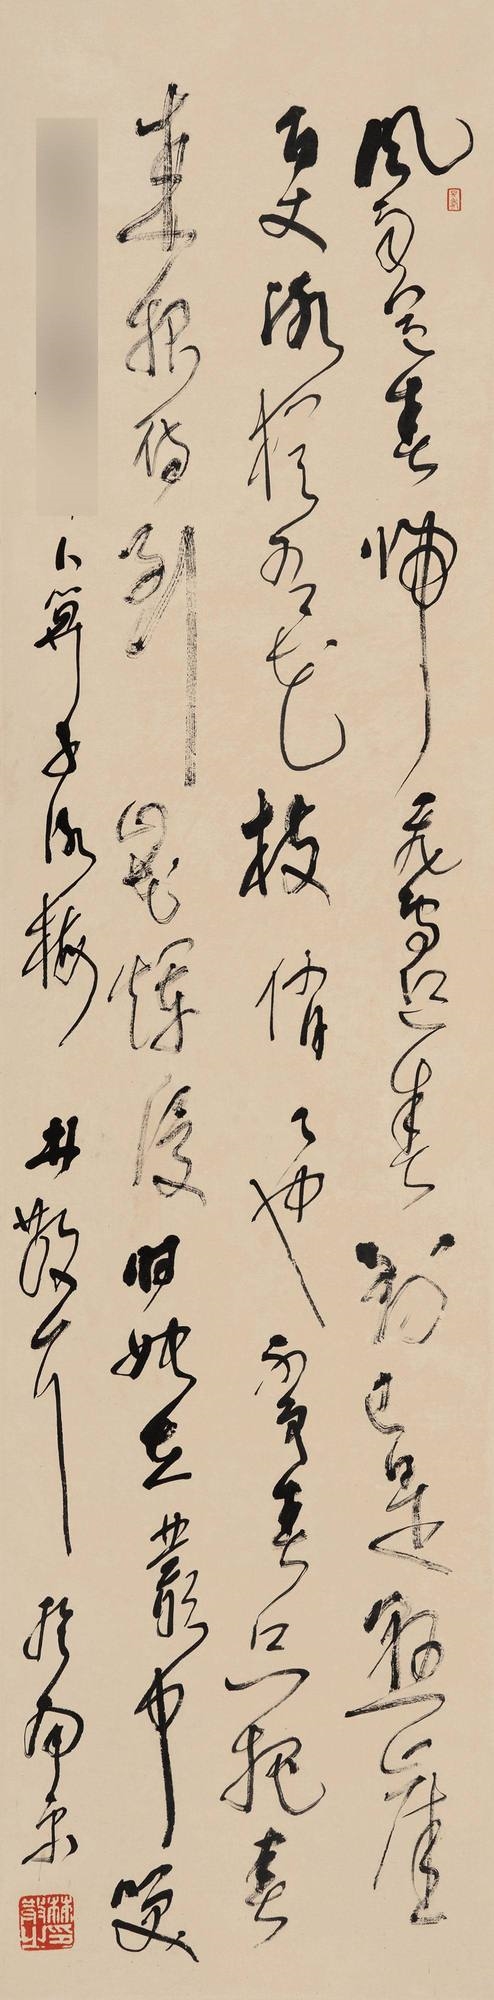 風雨送春歸飛雪迎春到已是懸崖
百丈冰猶有花枝俏〻也不爭春只把春
來報待到山花爛漫時她在叢中笑
卜算子詠梅 林散耳於南京
林散之印